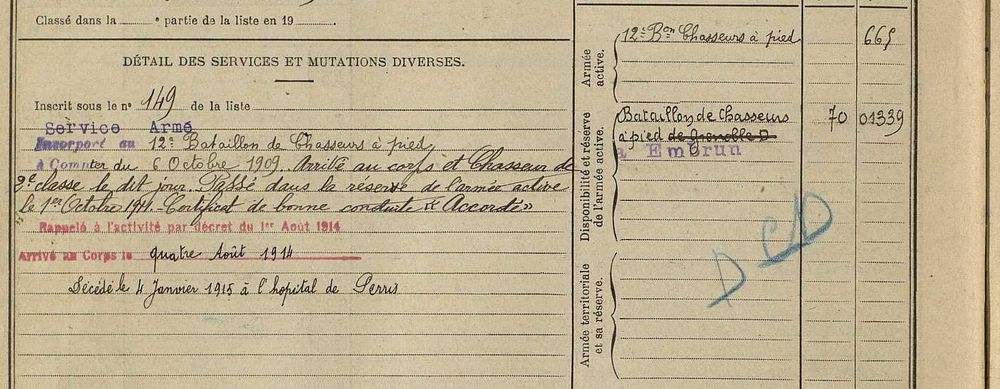 Classé dans la e partie de la liste en 19
DÉTAIL DES SERVICES ET MUTATIONS DIVERSES.
Inscrit sous le no 149 de la liste
Service Armé
Incorporé au 12e Bataillon de Chasseurs à pied
à Compter du 6 Octobre 1909. Arrivé au corps et Chasseur de
2e classe le dit jour. Passé dans la réserve de l'armée active
le 1er Octobre 1911. Certificat de bonne conduite "Accordé"
Rappelé à l'activité par décret du 1er Août 1914
Arrivé au Corps le quatre Août 1914
Décédé le 4 Janvier 1915 à l'hopital de Serris
Armée
active.
12e Bon Chasseurs à pied 665
Disponibilité et réserve
de l'armée active.
Bataillon de Chasseurs 70 01339
à pied de Grenoble D
à Embrun
D CD
Armée territoriale
et sa réserve.